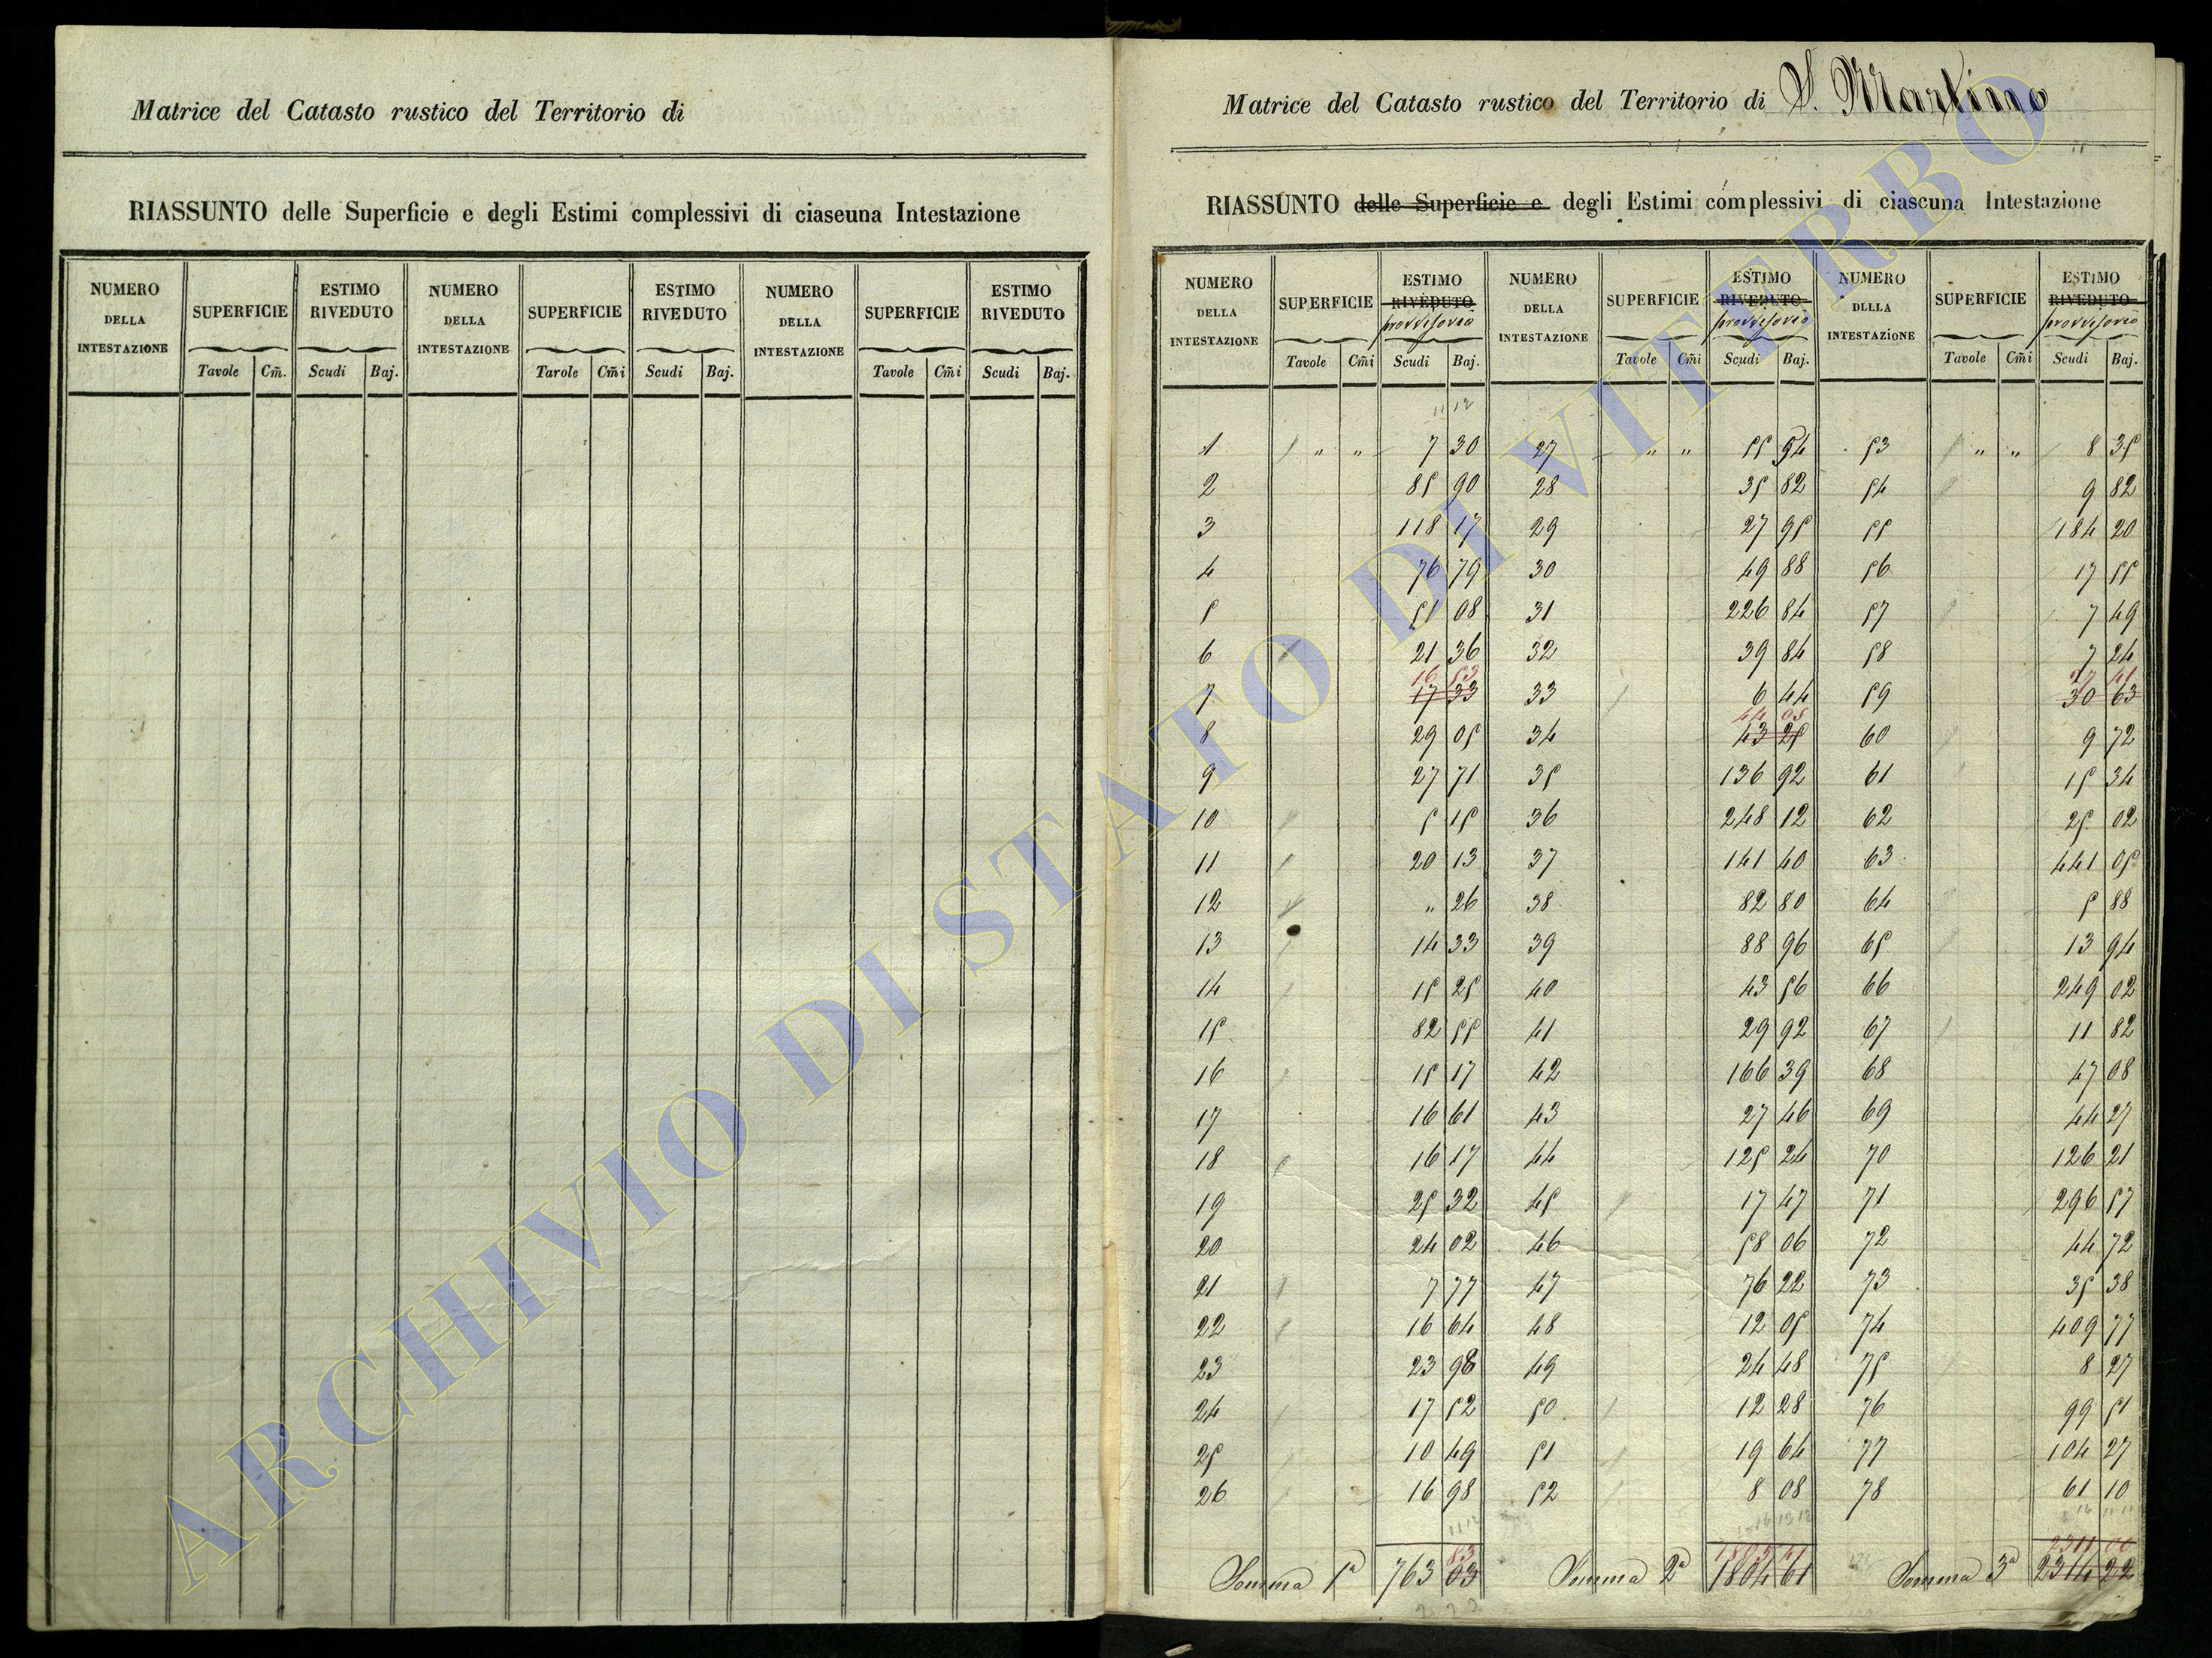 Matrice del Catasto rustico del Territorio di
RIASSUNTO delle Superficie e degli Estimi complessivi di ciascuna Intestazione
NUMERO DELLA INTESTAZIONE SUPERFICIE ESTIMO RIVEDUTO NUMERO DELLA INTESTAZIONE SUPERFICIE ESTIMO RIVEDUTO NUMERO DELLA INTESTAZIONE SUPERFICIE ESTIMO RIVEDUTO
Tavole Cm̃. Scudi Baj. Tavole Cm̃i Scudi Baj. Tavole Cm̃i Scudi Baj.
Matrice del Catasto rustico del Territorio di S. Martino
RIASSUNTO delle Superficie e degli Estimi complessivi di ciascuna Intestazione
NUMERO DELLA INTESTAZIONE SUPERFICIE ESTIMO RIVEDUTO provvisorio NUMERO DELLA INTESTAZIONE SUPERFICIE ESTIMO RIVEDUTO provvisorio NUMERO DLLLA INTESTAZIONE SUPERFICIE ESTIMO RIVEDUTO provvisorio
Tavole Cm̃i Scudi Baj. Tavole Cm̃i Scudi Baj. Tavole Cm̃i Scudi Baj.
11 12
1 " " 7 30 27 " " 55 94 53 " " 8 35
2 85 90 28 35 82 54 9 82
3 118 17 29 27 95 55 184 20
4 76 79 30 49 88 56 17 55
5 51 08 31 226 84 57 7 49
6 21 36 32 39 84 58 7 24
16 53 27 41
7 17 33 33 6 44 59 30 63
44 05
8 29 05 34 43 25 60 9 72
9 27 71 35 136 92 61 15 34
10 5 15 36 248 12 62 25 02
11 20 13 37 141 40 63 441 05
12 " 26 38 82 80 64 5 88
13 14 33 39 88 96 65 13 94
14 15 25 40 43 56 66 249 02
15 82 55 41 29 92 67 11 82
16 15 17 42 166 39 68 47 08
17 16 61 43 27 46 69 44 27
18 16 17 44 125 24 70 126 21
19 25 32 45 17 47 71 296 57
20 24 02 46 58 06 72 44 72
21 7 77 47 76 22 73 35 38
22 16 64 48 12 05 74 409 77
23 23 98 49 24 48 75 8 27
24 17 52 50 12 28 76 99 51
25 10 49 51 19 64 77 104 27
26 16 98 52 8 08 78 61 10
83 1805 41 2311 00
Somma 1ª 763 03 Somma 2ª 1804 61 Somma 3ª 2314 22
ARCHIVIO DI STATO DI VITERBO